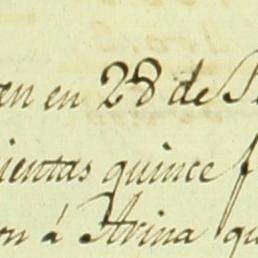 en en 28 de S
ientas quince f
on á Arina qu